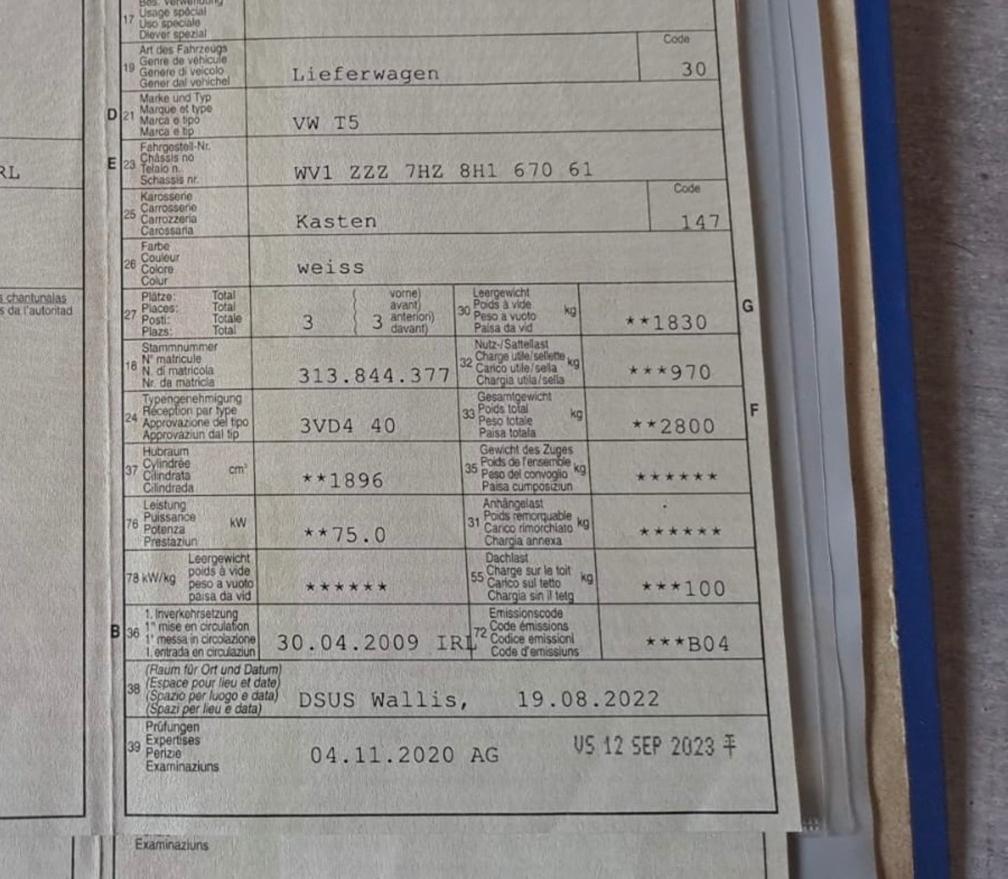 Bes. Verwendung
17 Usage spécial
Uso speciale
Diever spezial
Art des Fahrzeugs
19 Genre de véhicule
Genere di veicolo
Gener dal vehichel
Lieferwagen
Code
30
D 21 Marke und Typ
Marque et type
Marca e tipo
Marca e tip
VW T5
E 23 Fahrgestell-Nr.
Châssis no
Telaio n.
Schassis nr.
WV1 ZZZ 7HZ 8H1 670 61
25 Karosserie
Carrosserie
Carrozzeria
Carossaria
Kasten
Code
147
26 Farbe
Couleur
Colore
Colur
weiss
27 Plätze: Total
Places: Total
Posti: Totale
Plazs: Total
3
3
vorne)
avant)
anteriori)
davant)
30 Leergewicht
Poids à vide kg
Peso a vuoto
Paisa da vid
**1830
G
18 Stammnummer
N° matricule
N. di matricola
Nr. da matricla
313.844.377
32 Nutz-/Sattellast
Charge utile/sellette kg
Carico utile/sella
Chargia utila/sella
***970
24 Typengenehmigung
Réception par type
Approvazione del tipo
Approvaziun dal tip
3VD4 40
33 Gesamtgewicht
Poids total kg
Peso totale
Paisa totala
**2800
F
37 Hubraum
Cylindrée cm³
Cilindrata
Cilindrada
**1896
35 Gewicht des Zuges
Poids de l'ensemble kg
Peso del convoglio
Paisa cumposiziun
******
76 Leistung
Puissance kW
Potenza
Prestaziun
**75.0
31 Anhängelast
Poids remorquable kg
Carico rimorchiato
Chargia annexa
******
78 kW/kg
Leergewicht
poids à vide
peso a vuoto
paisa da vid
******
55 Dachlast
Charge sur le toit kg
Carico sul tetto
Chargia sin il tetg
***100
B 36 1. Inverkehrsetzung
1re mise en circulation
1a messa in circolazione
1. entrada en circulaziun
30.04.2009 IRL
72 Emissionscode
Code émissions
Codice emissioni
Code d'emissiuns
***B04
38 (Raum für Ort und Datum)
(Espace pour lieu et date)
(Spazio per luogo e data)
(Spazi per lieu e data)
DSUS Wallis, 19.08.2022
39 Prüfungen
Expertises
Perizie
Examinaziuns
04.11.2020 AG
VS 12 SEP 2023
Examinaziuns
RL
s chantunalas
s da l'autoritad